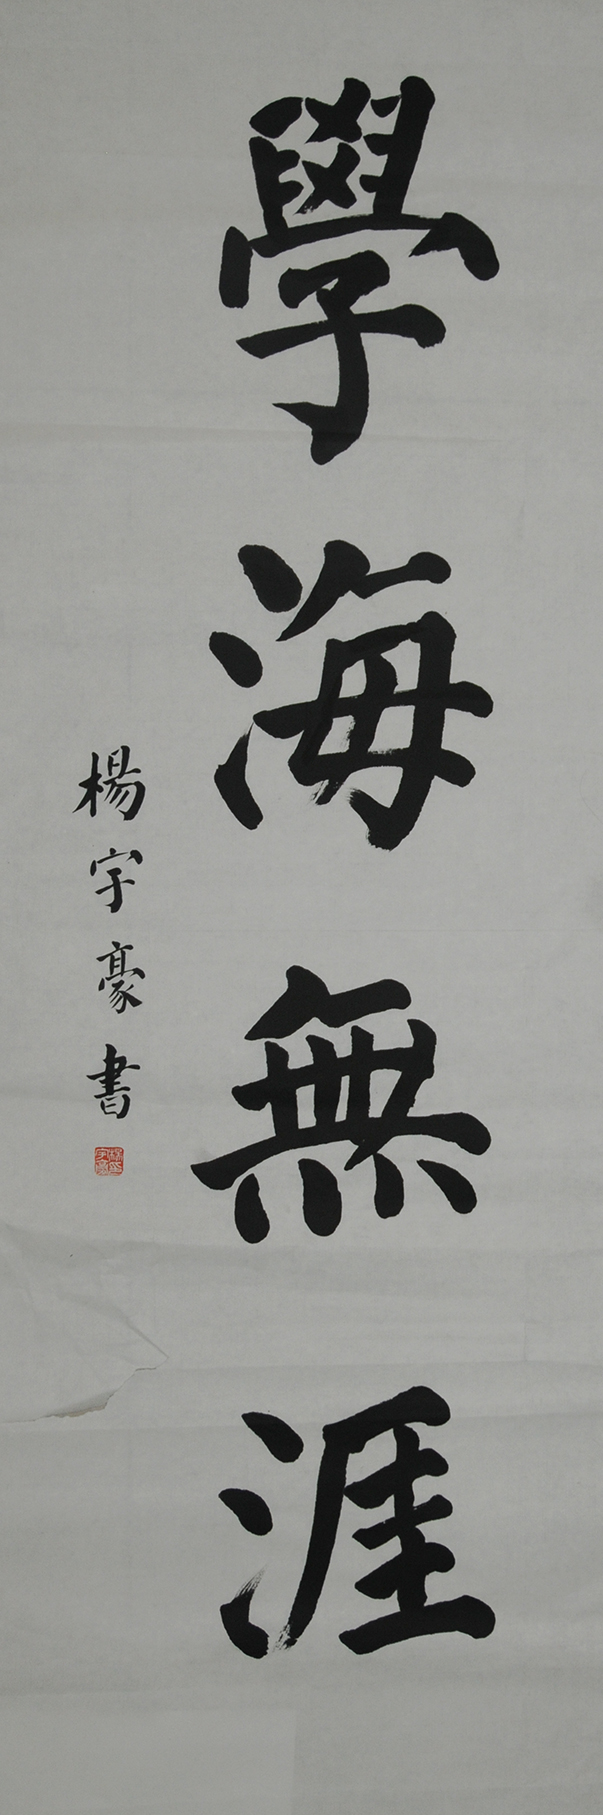 學海無涯
楊宇豪書